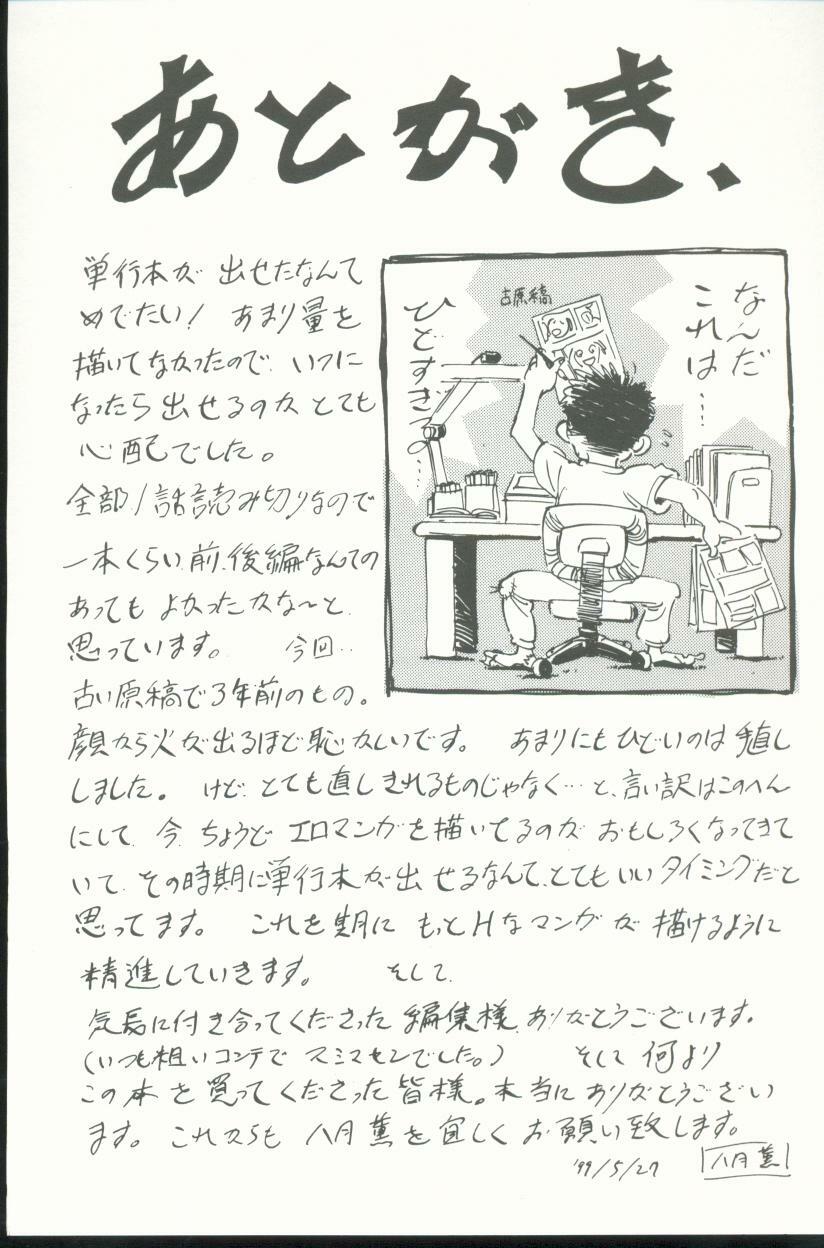 あとがき、
単行本が出せたなんて
めでたい! あまり量を
描いてなかったので、いつに
なったら出せるのかとても
心配でした。
全部1話読み切りなので
一本くらい前、後編なんての
あってもよかったかな〜と
思っています。 今回‥
古い原稿で3年前のもの。
顔から火が出るほど恥かしいです。 あまりにもひどいのは直し
しました。 けど、とても直しきれるものじゃなく…と、言い訳はこのへん
にして、今、ちょうどエロマンガを描いてるのがおもしろくなってきて
いて、その時期に単行本が出せるなんて、とてもいいタイミングだと
思ってます。 これを期にもっとHなマンガが描けるように
精進していきます。 そして、
気長に付き合ってくださった編集様、ありがとうございます。
(いつも粗いコンテでスミマセンでした。) そして何より
この本を買ってくださった皆様。本当にありがとうござい
ます。これからも八月薫を宜しくお願い致します。
'99/5/27 八月薫
なんだ
これは……
古原稿
ひどすぎる…